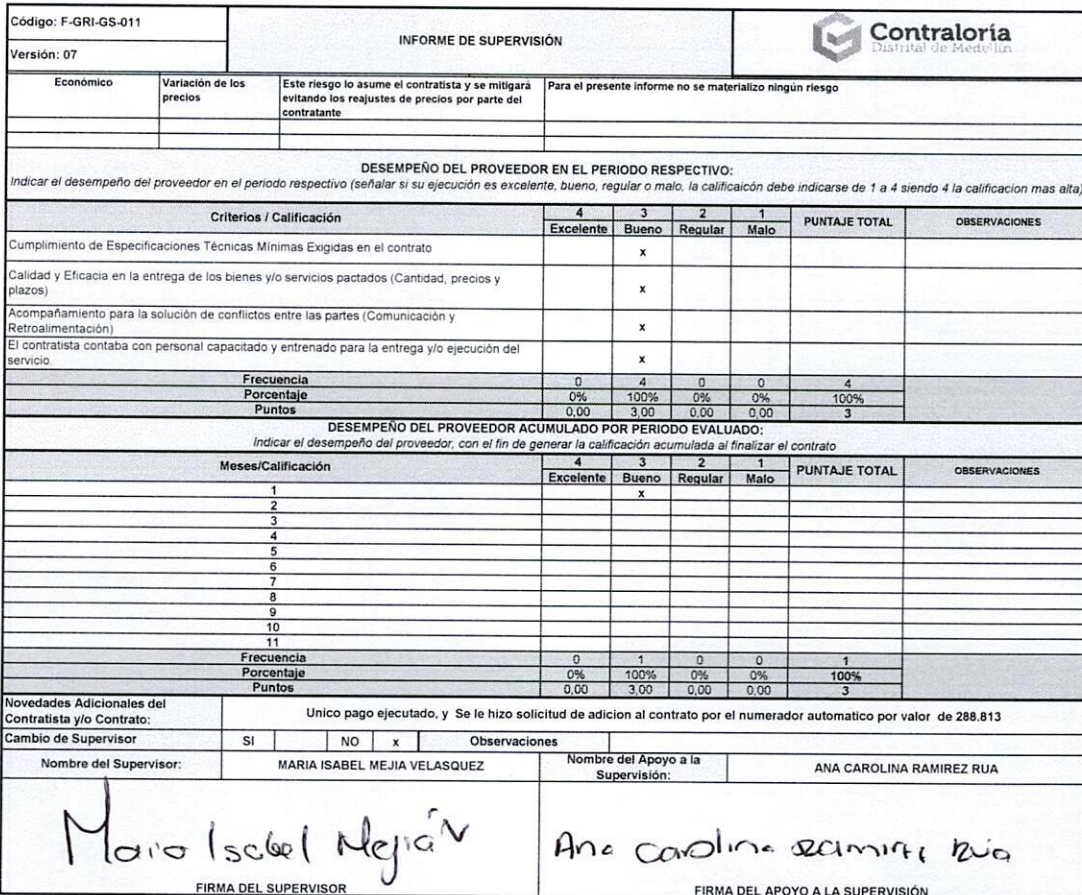 Código: F-GRI-GS-011
Versión: 07
INFORME DE SUPERVISIÓN
Contraloría
Distrital de Medellín
Económico
Variación de los
precios
Este riesgo lo asume el contratista y se mitigará
evitando los reajustes de precios por parte del
contratante
Para el presente informe no se materializo ningún riesgo
DESEMPEÑO DEL PROVEEDOR EN EL PERIODO RESPECTIVO:
Indicar el desempeño del proveedor en el periodo respectivo (señalar si su ejecución es excelente, bueno, regular o malo, la calificaicón debe indicarse de 1 a 4 siendo 4 la calificacion mas alta)
Criterios / Calificación 4 3 2 1 PUNTAJE TOTAL OBSERVACIONES
Excelente Bueno Regular Malo
Cumplimiento de Especificaciones Técnicas Mínimas Exigidas en el contrato x
Calidad y Eficacia en la entrega de los bienes y/o servicios pactados (Cantidad, precios y
plazos) x
Acompañamiento para la solución de conflictos entre las partes (Comunicación y
Retroalimentación) x
El contratista contaba con personal capacitado y entrenado para la entrega y/o ejecución del
servicio. x
Frecuencia 0 4 0 0 4
Porcentaje 0% 100% 0% 0% 100%
Puntos 0,00 3,00 0,00 0,00 3
DESEMPEÑO DEL PROVEEDOR ACUMULADO POR PERIODO EVALUADO:
Indicar el desempeño del proveedor, con el fin de generar la calificación acumulada al finalizar el contrato
Meses/Calificación 4 3 2 1 PUNTAJE TOTAL OBSERVACIONES
Excelente Bueno Regular Malo
1 x
2
3
4
5
6
7
8
9
10
11
Frecuencia 0 1 0 0 1
Porcentaje 0% 100% 0% 0% 100%
Puntos 0,00 3,00 0,00 0,00 3
Novedades Adicionales del
Contratista y/o Contrato:
Unico pago ejecutado, y Se le hizo solicitud de adicion al contrato por el numerador automatico por valor de 288.813
Cambio de Supervisor SI NO x Observaciones
Nombre del Supervisor: MARIA ISABEL MEJIA VELASQUEZ
Nombre del Apoyo a la
Supervisión:
ANA CAROLINA RAMIREZ RUA
Maria Isabel Mejía V
Ana Carolina Ramirez Rúa
FIRMA DEL SUPERVISOR
FIRMA DEL APOYO A LA SUPERVISIÓN